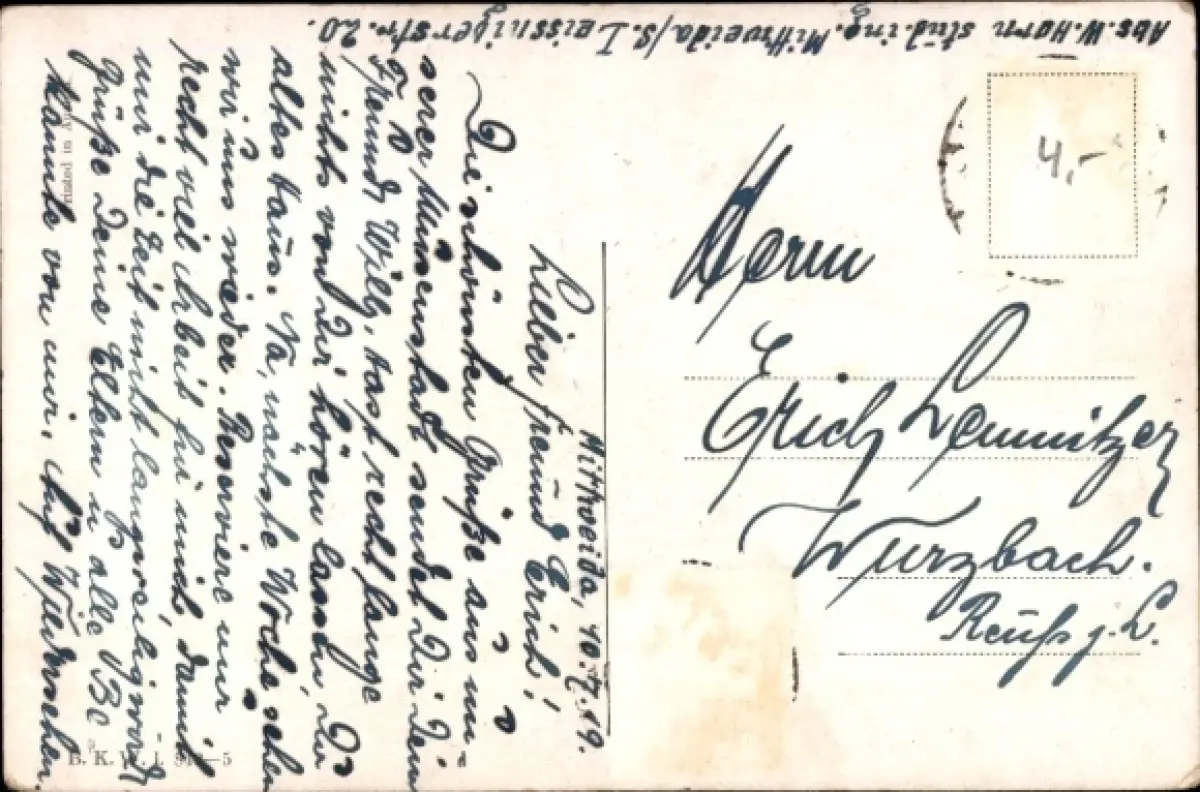 Abs. W. Horn stud. ing. Mittweida/S. Leissnigerstr. 20.
Mittweida, 10.7.19.
Lieber Freund Erich!
Die schönsten Grüße aus un-
serer Musenstadt sendet Dir Dein
Freund Willy. Hast recht lange
nichts von Dir hören lassen, Du
altes Haus. Na, nächste Woche sehen
wir uns wieder. Reserviere nur
recht viel Arbeit für mich, damit
mir die Zeit nicht langweilig wird.
Grüße Deine Eltern u alle Be
kannte von mir. Auf Wiedersehen.
Herrn
Erich Lemnitzer
Wurzbach.
Reuß j. L.
4.-
Printed in
B. K. W. I.